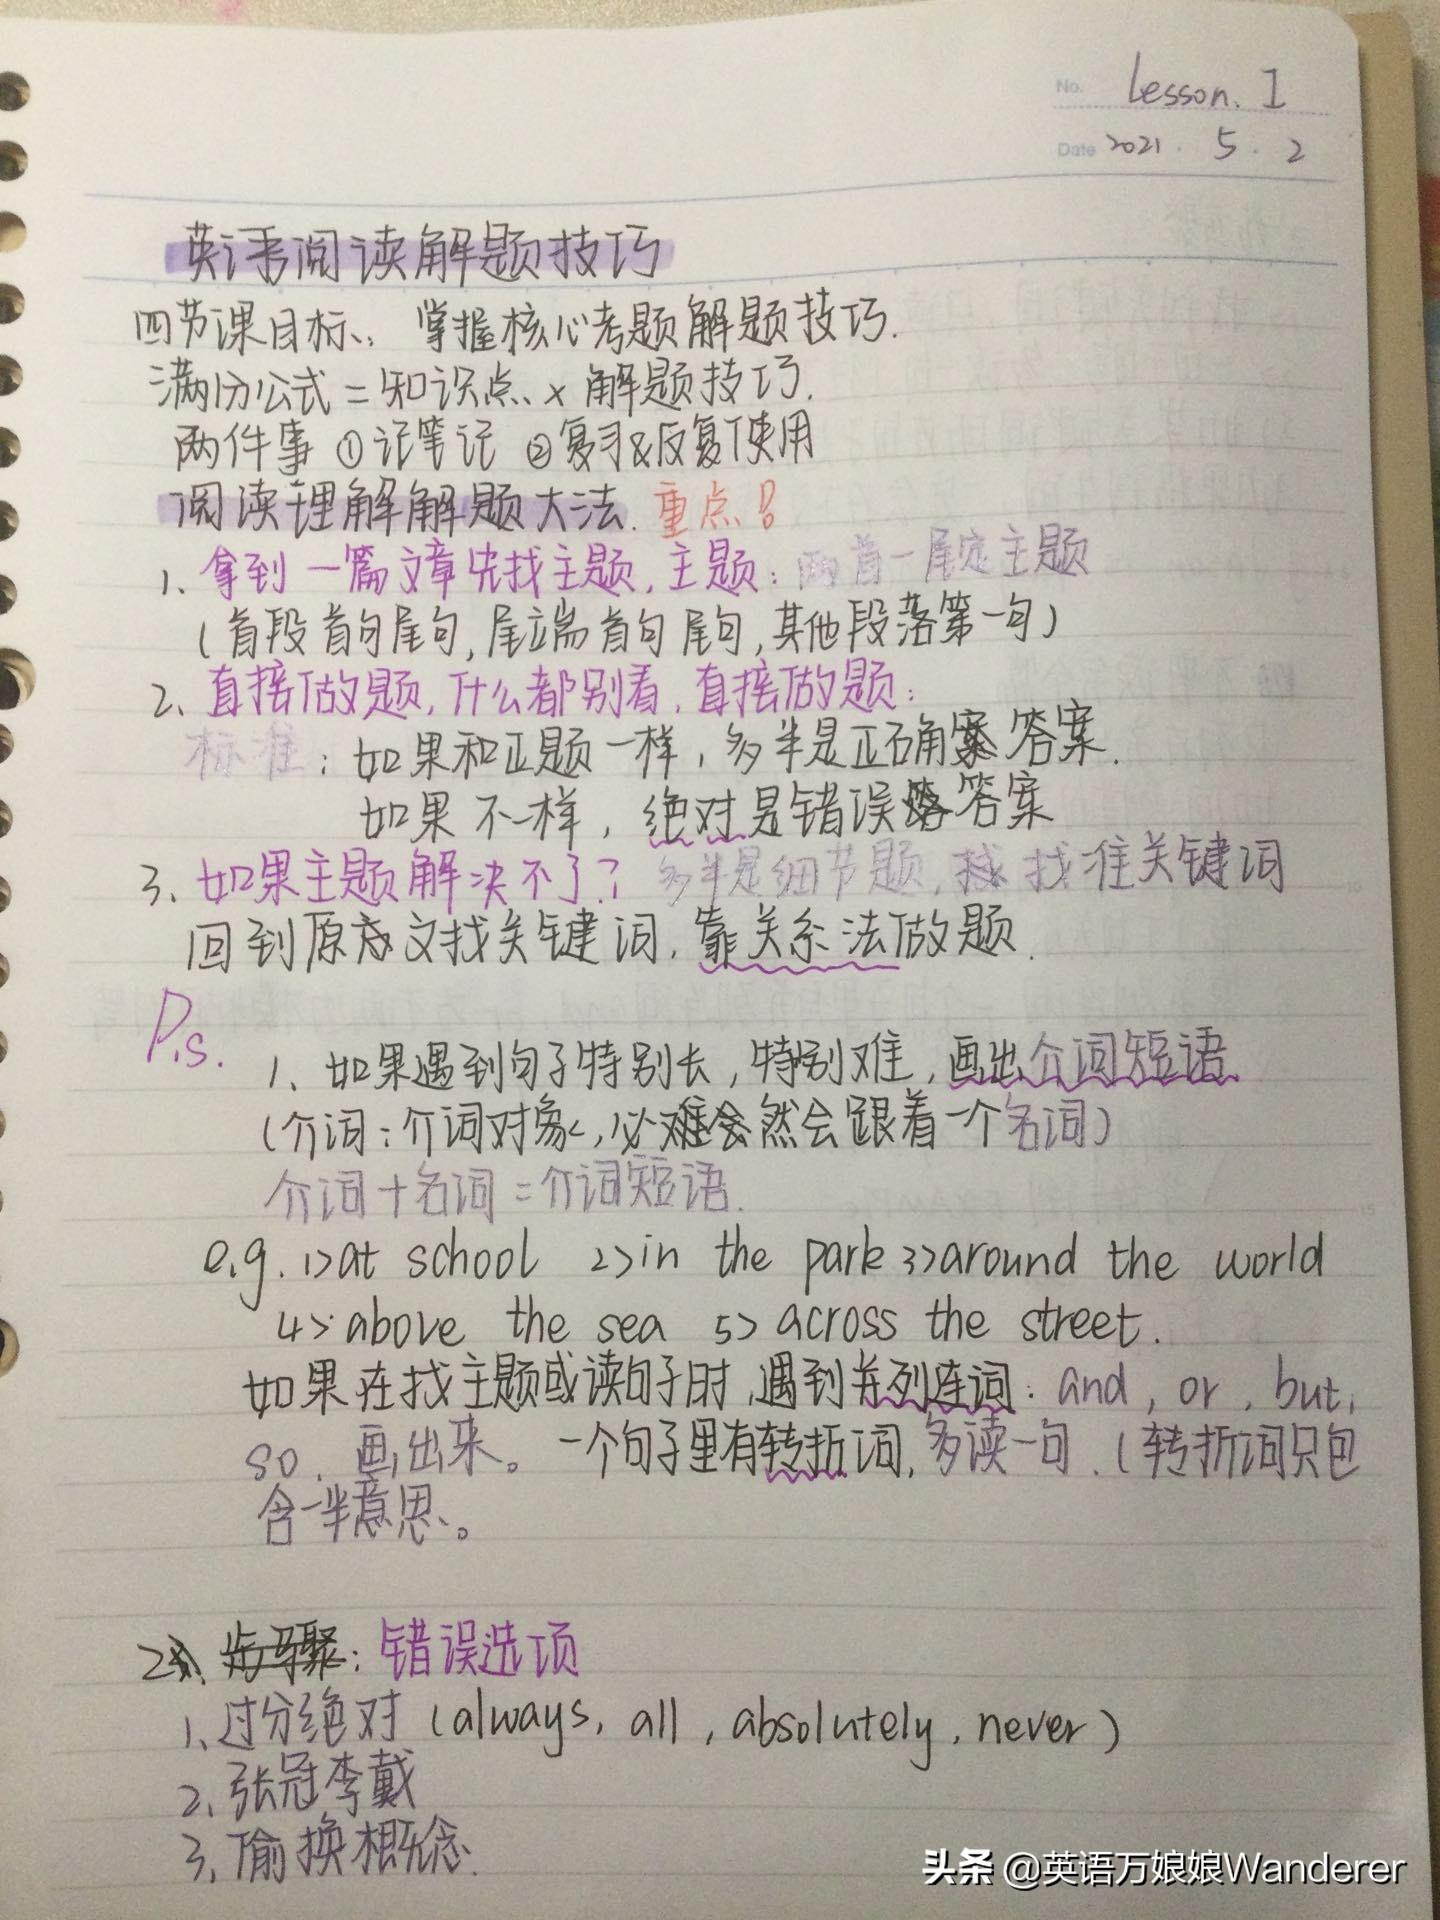 No. Lesson. I
Date 2021. 5. 2
英语阅读解题技巧
四节课目标: 掌握核心考题解题技巧.
满分公式=知识点×解题技巧.
两件事 ①记笔记 ②复习&反复使用
阅读理解解题大法. 重点!
1、拿到一篇文章先找主题,主题:两首一尾定主题
(首段首句尾句,尾端首句尾句,其他段落第一句)
2、直接做题,什么都别看,直接做题:
标准:如果和正题一样,多半是正确答案.
如果不一样,绝对是错误答案
3、如果主题解决不了?多半是细节题, 找准关键词
回到原文找关键词,靠关系法做题.
P.s.
1、如果遇到句子特别长,特别难,画出介词短语
(介词:介词对象,必然会跟着一个名词)
介词+名词=介词短语.
e.g. 1>at school 2>in the park 3>around the world
4>above the sea 5>across the street.
如果在找主题或读句子时,遇到并列连词:and, or, but,
so, 画出来。一个句子里有转折词,多读一句.(转折词只包
含一半意思。
2、步骤:错误选项
1、过分绝对(always, all, absolutely, never)
2、张冠李戴
3、偷换概念.
头条 @英语万娘娘Wanderer